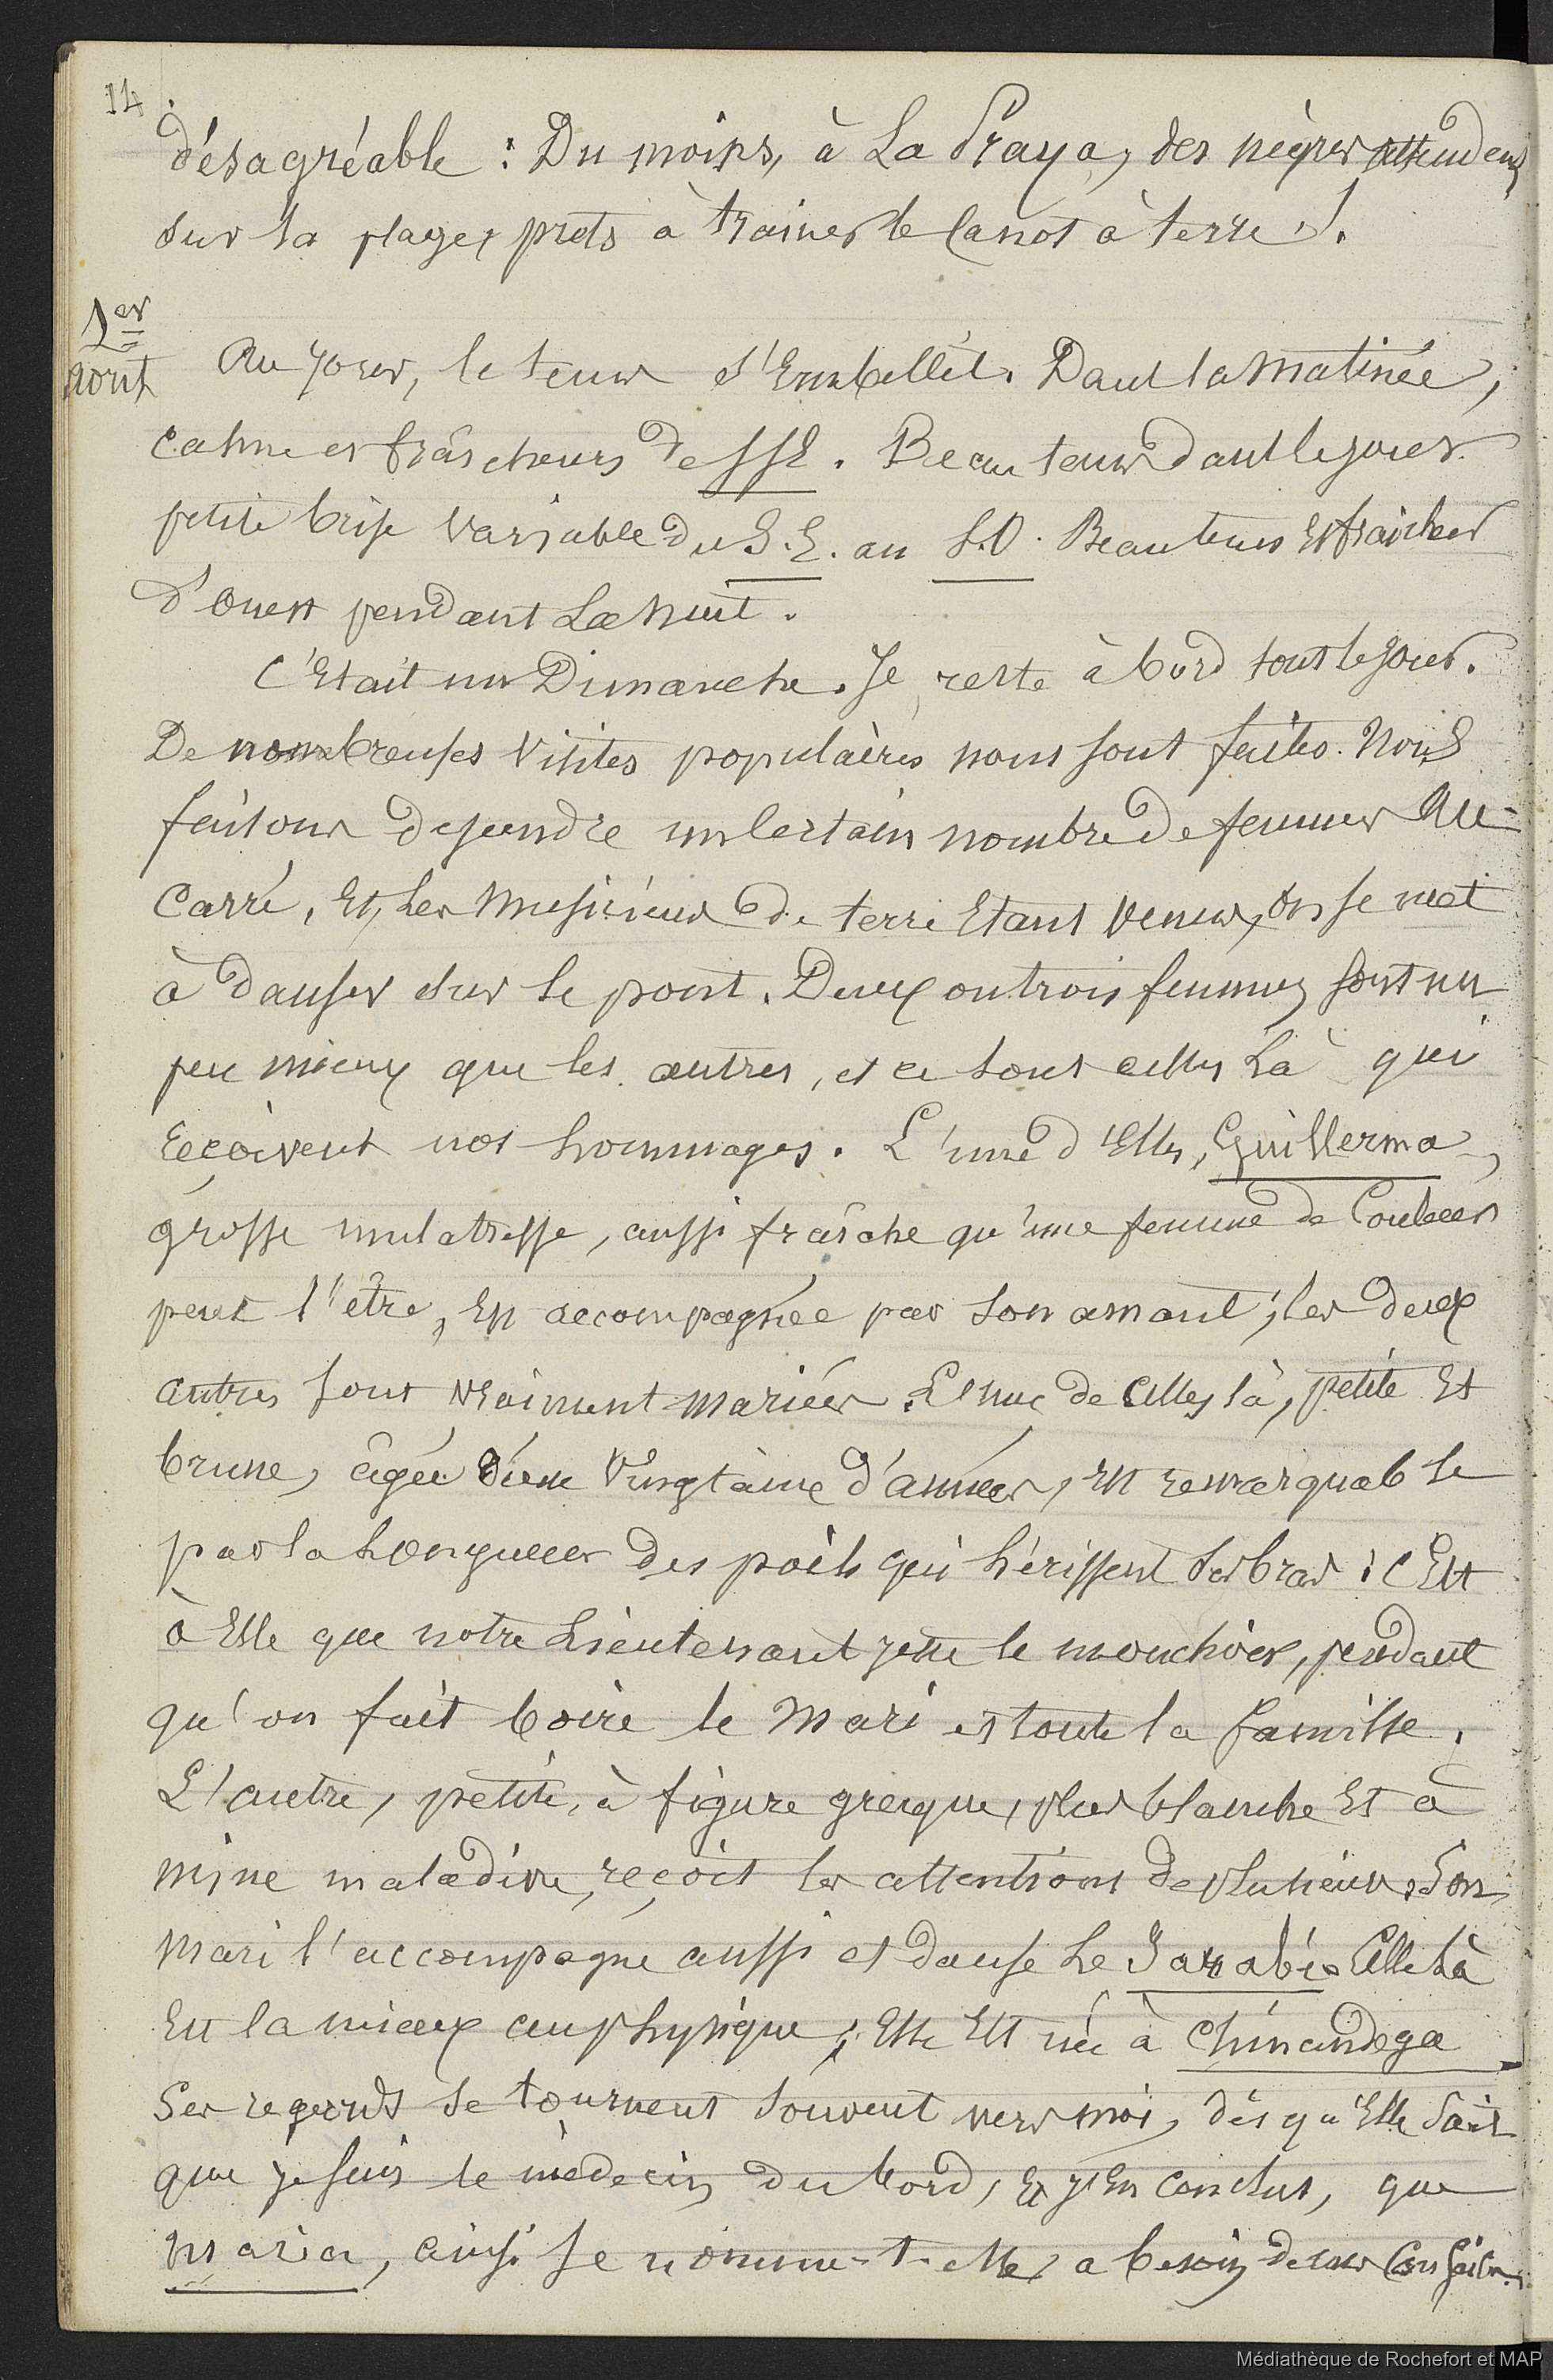 14
désagréable : Du moins, à La Praya, des nègres attendent
sur la plage, prêts à trainer le Canot à terre !.
1er
août
Au jour, le temps s'Embellit. Dans la Matinée,
calme et fraîcheurs de SSE. Beau temps dans le jour.
petite brise Variable du S.E. au S.O. Beau temps Et fraîcheur
d'Ouest pendant La Nuit.
C'Etait un Dimanche. Je reste à bord tout le jour.
De nombreuses Visites populaires nous sont faites. Nous
faisons descendre un Certain nombre de femmes Au
Carré, Et, les Musiciens de terre Etant Venus, On se met
à danser sur le pont. Deux ou trois femmes sont un
peu mieux que les autres, et ce sont celles là qui
reçoivent nos hommages. L'une d'Elles, Guillerma,
grosse mulatresse, aussi fraîche qu'une femme de Couleur
peut l'être, Est accompagnée par son amant ; les deux
autres sont vraiment mariées. L'une de Celles là, petite Et
brune, âgée d'une Vingtaine d'années, est remarquable
par la Longueur des poils qui hérissent ses bras ; c'Est
à Elle que notre Lieutenant jette le mouchoir, pendant
qu'on fait boire le Mari et toute la famille.
L'autre, petite, à figure grecque, plus blanche Et à
mine maladive, reçoit les attentions de plusieurs. Son
Mari l'accompagne aussi et danse Le Jarabé. Celle là
Est la mieux au physique ; Elle Est née à Chinandega
Ses regards se tournent souvent vers moi, dès qu'Elle sait
que je suis le médecin du bord, Et j'En conclus, que
Maria, ainsi se nomme-t-elle, a besoin de mes Conseils.
Médiathèque de Rochefort et MAP